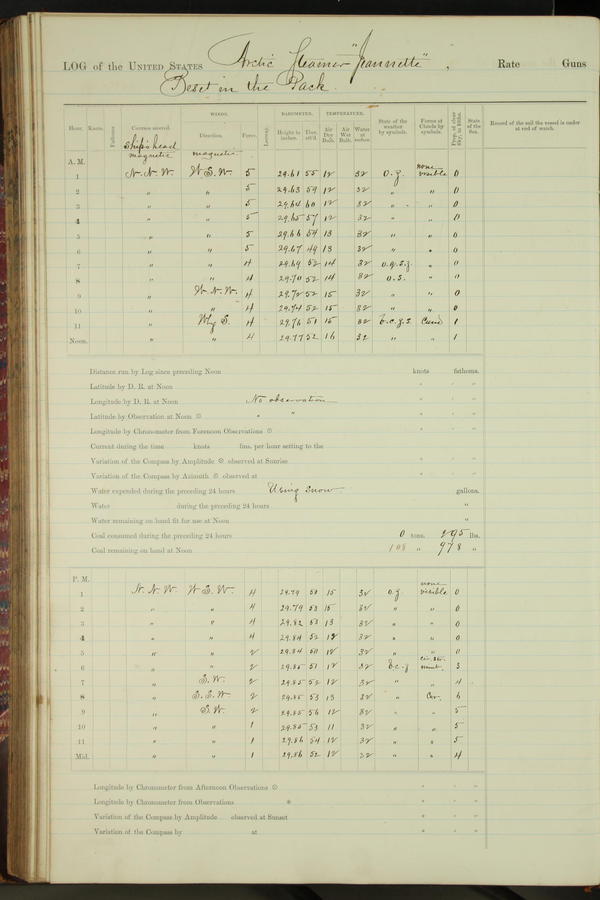 LOG of the UNITED STATES Arctic Steamer "Jeannette", Rate Guns
Beset in the Pack.
WINDS. BAROMETER. TEMPERATURE.
Hour. Knots. Fathoms Courses steered. Direction. Force. Leeway. Height in inches. Ther. att'd. Air Dry Bulb. Air Wet Bulb. Water at surface. State of the weather by symbols. Forms of Clouds by symbols. Prop. of clear Sky, in 10ths. State of the Sea. Record of the sail the vessel is under at end of watch.
Ship's head
magnetic magnetic
A. M. none
1 N.N.W. W.S.W. 5 29.61 55 12 32 O.Z. visible 0
2 " " 5 29.63 59 12 32 " " 0
3 " " 5 29.64 60 12 32 " " 0
4 " " 5 29.65 57 12 32 " " 0
5 " " 5 29.66 54 13 32 " " 0
6 " " 5 29.67 49 13 32 " " 0
7 " " 4 29.69 52 14 32 O.Q.S.Z. " 0
8 " " 4 29.70 52 14 32 O.S. " 0
9 " W.N.W. 4 29.72 52 15 32 " " 0
10 " " 4 29.74 52 15 32 " " 0
11 " 4 29.76 51 15 32 B.C.Z.S. 1
Noon. " " 4 29.77 52 16 32 " " 1
Distance run by Log since preceding Noon knots fathoms.
Latitude by D. R. at Noon " " "
Longitude by D. R. at Noon No observation " " "
Latitude by Observation at Noon ☉ " " " " "
Longitude by Chronometer from Forenoon Observations ☉ " " "
Current during the time knots fms. per hour setting to the
Variation of the Compass by Amplitude ☉ observed at Sunrise " " "
Variation of the Compass by Azimuth ☉ observed at " " "
Water expended during the preceding 24 hours Using Snow gallons.
Water during the preceding 24 hours "
Water remaining on hand fit for use at Noon "
Coal consumed during the preceding 24 hours 0 tons. 295 lbs.
Coal remaining on hand at Noon 108 " 978 "
P. M. none
1 N.N.W. W.S.W. 4 29.79 15 32 O.Z. visible 0
2 " " 4 29.79 53 15 32 " " 0
3 " " 4 29.82 53 13 32 " " 0
4 " " 4 29.84 52 12 32 " " 0
5 " " 2 29.84 12 32 " " 0
cir. str.
6 " " 2 29.85 51 12 32 B.C.Z. 3
7 " S.W. 2 29.85 52 12 32 " " 4
8 " S.S.W. 2 29.85 53 13 32 " Cir. 6
9 " S.W. 2 29.85 56 12 32 " " 5
10 " " 1 29.85 53 11 32 " " 5
11 " " 1 29.86 54 12 32 " " 5
Mid. " " 1 29.86 52 12 32 " " 4
Longitude by Chronometer from Afternoon Observations ☉ " " "
Longitude by Chronometer from Observations * " " "
Variation of the Compass by Amplitude observed at Sunset " " "
Variation of the Compass by at " " "